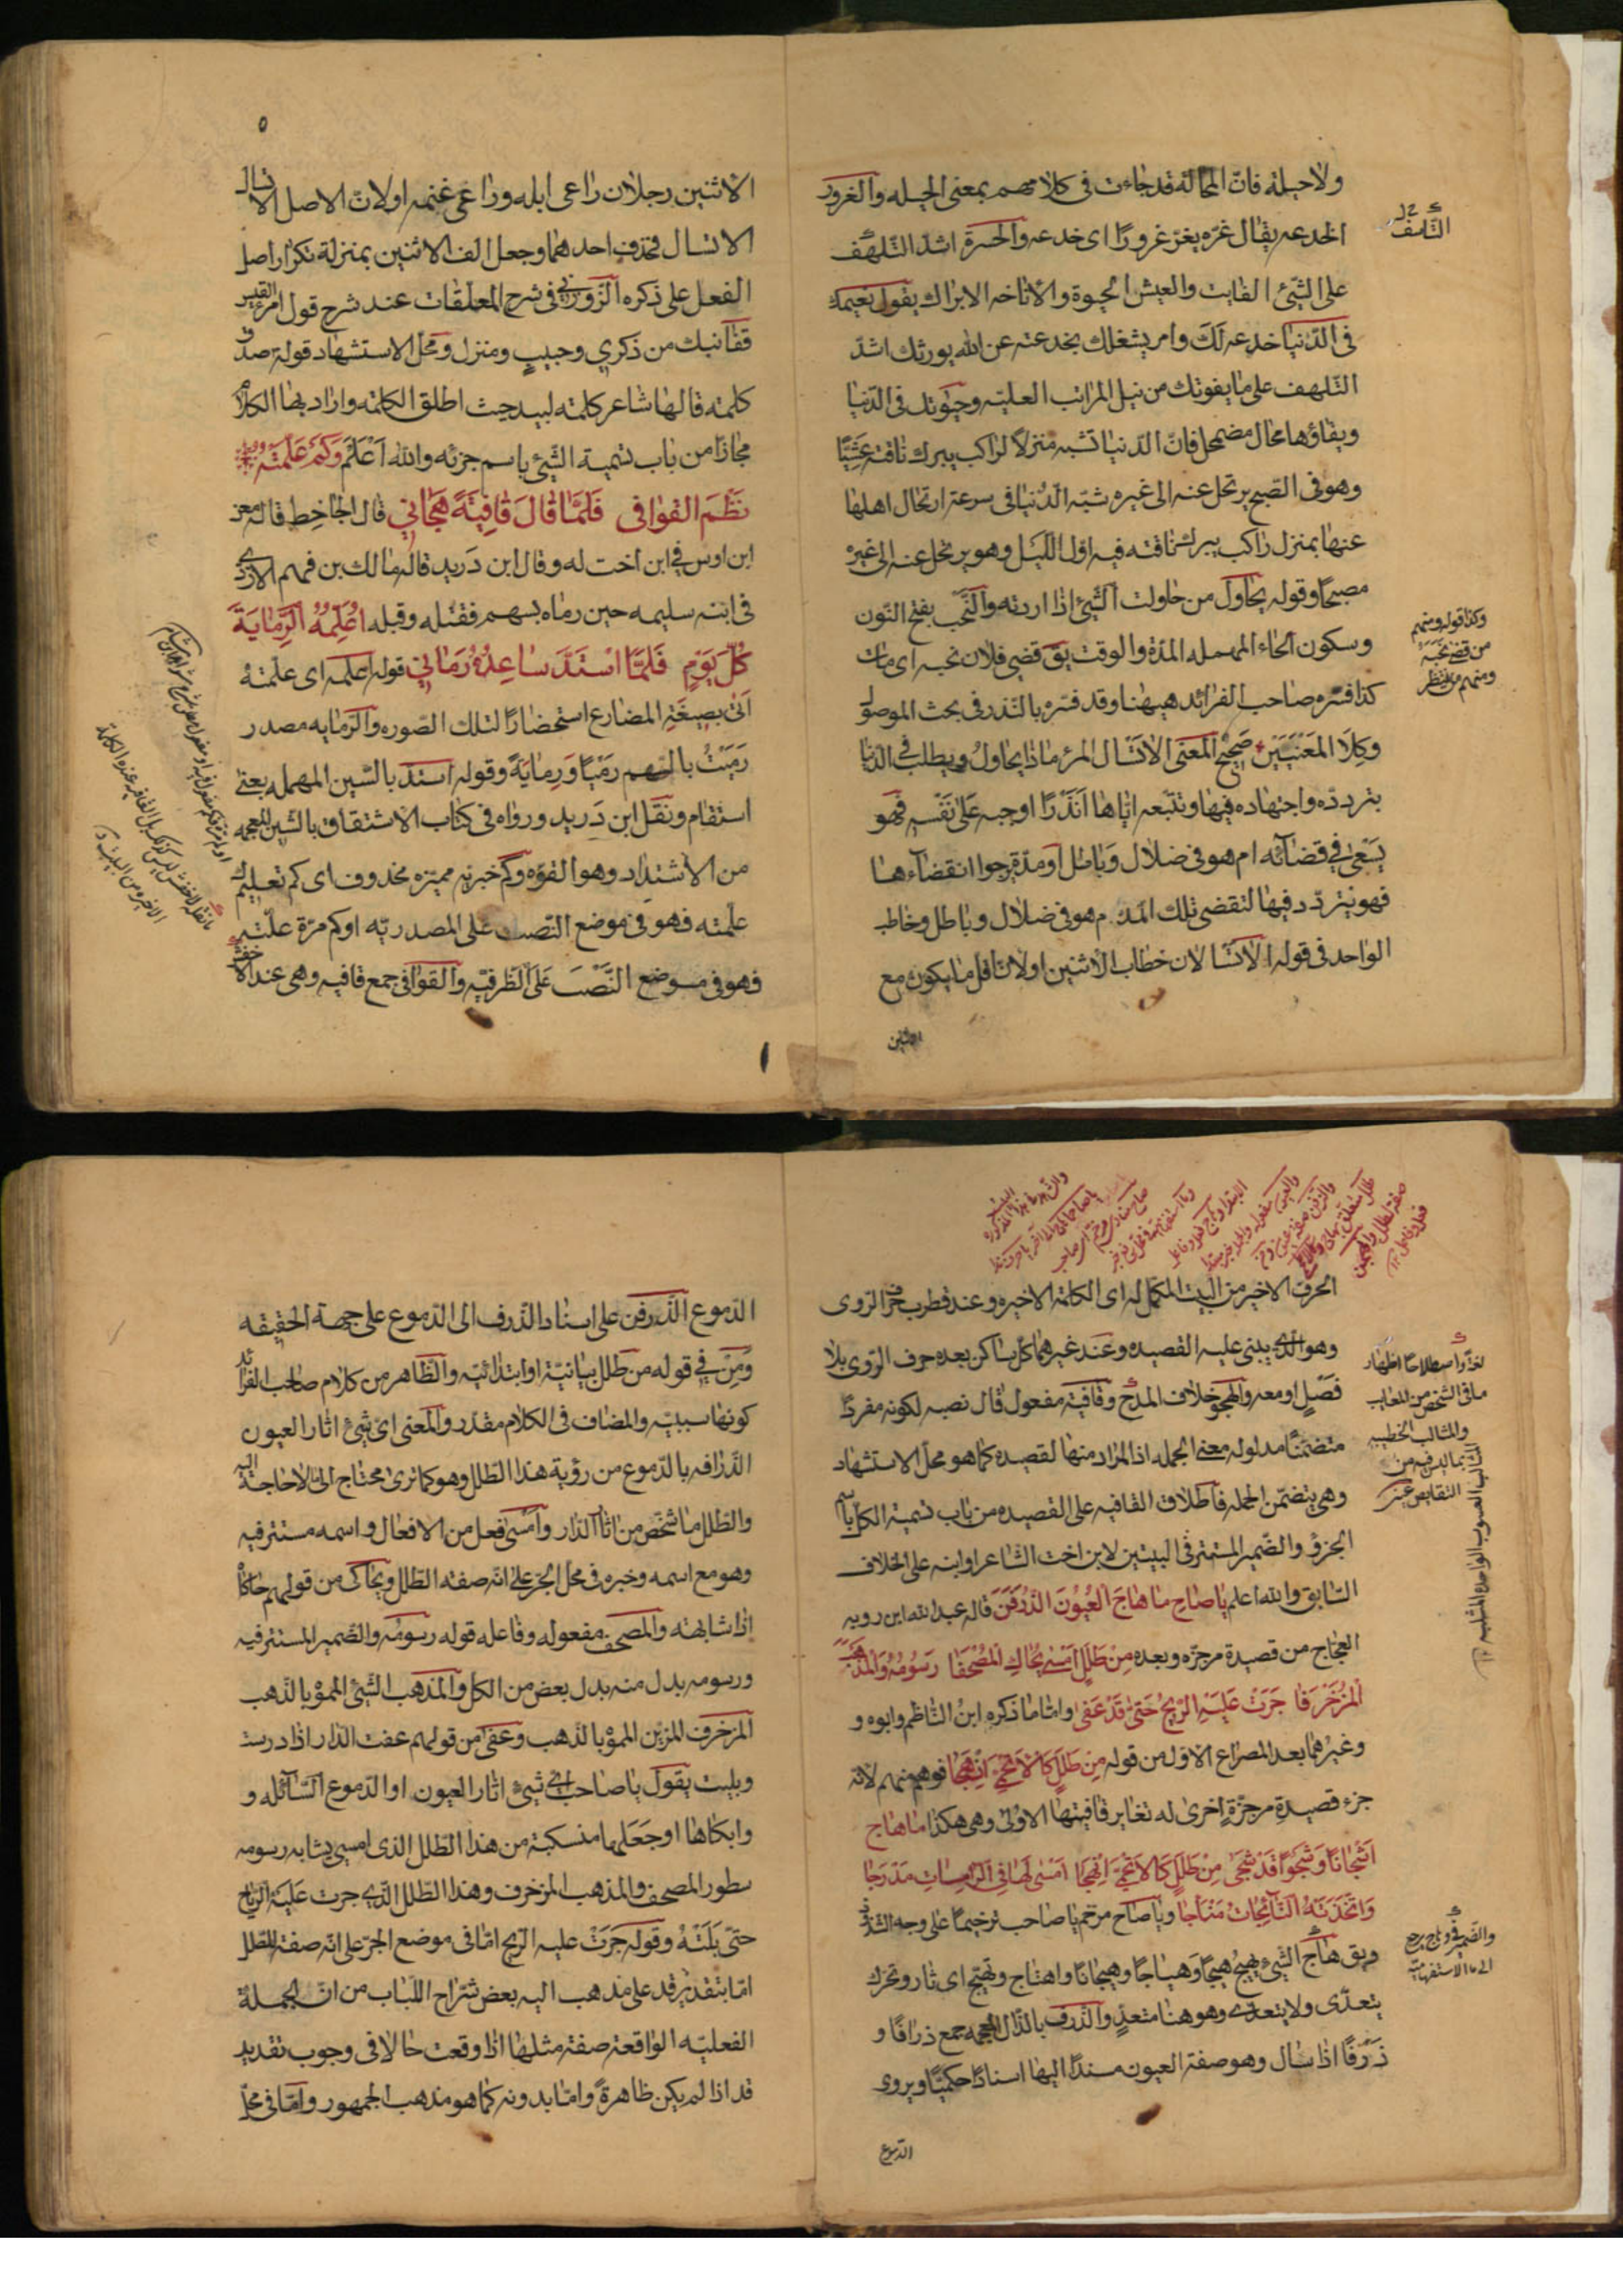 ولاحيلة فانّ المحالة قد جاءت فى كلامهم بمعنى الحيله والغرور
الخدعه يقال غرّه يغرّ غرورًا اى خدعه والحسرة اشدّ التلهّف
على الشّئ الفايت والعيش الحيوة والاناخه الابراك يقول نعيمك
فى الدّنيا خدعة لك وامر يشغلك بخدعته عن الله يورثك اشدّ
التّلهف على ما يفوتك من نيل المراتب العليّه وحيوتك فى الدّنيا
وبقاؤها محال مضمحل فانّ الدّنيا تشبه منزلاً لراكب يبرك ناقته عشيّا
وهو فى الصّبح يرتحل عنه الى غيره شبّه الدّنيا فى سرعة ارتحال اهلها
عنها بمنزل راكب يبرك ناقته فيه اوّل اللّيل وهو يرتحل عنه الى غيره
مصبحًا وقوله يحاول من حاولت الشّئ اذا اردته والنّحب بفتح النّون
وسكون الحاء المهمله المدّة والوقت يق قضى فلان نحبه اى مات
كذا فسّره صاحب الفرائد هيهنا وقد فسّره بالنّذر فى بحث الموصول
وكلا المعنيين صحيح المعنى الا تسال المرء ماذا يحاول ويطلب فى الدّنيا
بتردده واجتهاده فيها وتتبّعه ايّاها انذرًا اوجبه على نفسه فهو
يسعى فى قضائه ام هو فى ضلال وباطل او مدّة يرجوا انقضاءها
فهو يتردّد فيها لتقضى تلك المدة ام هو فى ضلال وباطل وخاطب
الواحد فى قوله الا تسالان خطاب الاثنين اولان اقل ما يكون مع
الاثنين
وكذا قوله ومنهم
من قضى نحبه
ومنهم من ينتظر
٥
الاثنين رجلان راعى ابله وراعى غنمه اولانّ الاصل الا تسال
الا تسال فحذف احدهما وجعل الف الاثنين بمنزلة تكرار اصل
الفعل على ذكره الزّوزنى فى شرح المعلقات عند شرح قول امرء القيس
قفا نبك من ذكرى حبيب ومنزل ومحلّ الاستشهاد قوله صدق
كلمة قالها شاعر كلمة لبيد حيث اطلق الكلمة واراد بها الكلام
مجازا من باب تسمية الشّئ باسم جزئه والله اعلم وكم علّمته
نظم القوافى فلمّا قال قافية هجانى قال الجاحظ قاله معن
ابن اوس فى ابن اخت له وقال ابن دريد قاله مالك بن فهم الازدى
فى ابنه سليمه حين رماه بسهم فقتله وقبله اعلّمه الرّماية
كلّ يوم فلمّا استدّ ساعده رمانى قوله اعلّمه اى علّمته
اتى بصيغة المضارع استحضارًا لتلك الصّوره والرّمايه مصدر
رميت بالسّهم رميًا ورماية وقوله استدّ بالسّين المهمله بمعنى
استقام ونقل ابن دريد ورواه فى كتاب الاشتقاق بالشّين المعجمه
من الاشتداد وهو القوّه وكم خبريّه مميّزه محذوف اى كم تعليم
علّمته فهو فى موضع النّصب على المصدريّه اوكم مرّة علّمته
فهو فى موضع النّصب على الظّرفيّه والقوافى جمع قافيه وهى عند الاخفش
١
الحرف الاخير من البيت المكمل له اى الكلمة الاخيره وعند قطرب حرف الرّوى
وهو الّذى يبنى عليه القصيده وعند غيرهما كلّ ساكن بعده حرف الرّوى بلا
فصل او معه والهجو خلاف المدح وقافية مفعول قال نصبه لكونه مفردًا
متضمّنا مدلوله معنى الجمله اذ المراد منها القصيده كما هو محلّ الاستشهاد
وهى يتضمّن الجمله فاطلاق القافيه على القصيده من باب تسمية الكلّ باسم
الجزؤ والضّمير المستتر فى البيتين لابن اخت الشّاعر اوابنه على الخلاف
السّابق والله اعلم ياصاح ما هاج العيون الذّرفن قاله عبد الله ابن روبه
العجّاج من قصيدة مرجزّه وبعده من طلل امسى يحاكى المصحفا رسومه والمذهب
المزخرفا جرت عليه الرّيح حتى قد عفى وامّا ما ذكره ابن النّاظم وابوه و
وغيرهما بعد المصراع الاوّل من قوله من طلل كالاتحمىّ انهجا فوهم منهم لانّه
جزء قصيدة مرجزّة اخرى له تغاير قافيتها الاولى وهى هكذا ما هاج
اشجانا وشجوًا قد شجى من طلل كالاتحمىّ انهجا امسى لعافى الرّامسات مدرجا
واتّخذته النّائجات مناجا وياصاح مرخّم ياصاحب ترخيما على وجه الشّذوذ
ويق هاج الشّئ يهيج هيجًا وهياجًا وهيجانًا واهتاج وتهيّج اى ثار وتحرّك
يتعدّى ولا يتعدّى وهو هنا متعدّ والذّرف بالذّال المعجمه جمع ذرافا و
ذرّفًا اذا سال وهو صفة العيون مسندًا اليها اسنادًا حكميّا ويروى
الدّموع
لغة واصطلاحًا اظهار
ما فى الشّخص من المعايب
والمثالب
بما ليس فيه من
النقايص عنه
والضمير فى هاج يرجع
الى ما الاستفهاميّة
الدّموع الذّرفن على اسناد الذّرف الى الدّموع على جهة الحقيقه
ومن فى قوله من طلل بيانيّة او ابتدائيّه والظّاهر من كلام صاحب الفرائد
كونها سببيّه والمضاف فى الكلام مقدّر والمعنى اىّ شئ اثار العيون
الذّرافه بالدّموع من رؤية هذا الطّلل وهو كما ترى محتاج الى ما لا حاجة اليه
والطّلل ما شخص من اثار الدّار وامسى فعل من الافعال واسمه مستتر فيه
وهو مع اسمه وخبره فى محلّ الجرّ على انّه صفة الطّلل ويحاكى من قولهم حاكاه
اذا شابهته والمصحف مفعوله وفاعله قوله رسومه والضّمير المستتر فيه
ورسومه بدل منه بدل بعض من الكل والمذهب الشّئ المموّه بالذّهب
المزخرف المزيّن المموّه بالذّهب وعفى من قولهم عفت الدّار اذا درست
وبليت يقول ياصاحب اىّ شئ اثار العيون او الدّموع السّائله و
وابكاها اوجعلها منسكبة من هذا الطّلل الذى امسى يشابه رسومه
سطور المصحف والمذهب المزخرف وهذا الطّلل الّذى جرت عليه الرّياح
حتّى بلته وقوله جرت عليه الرّيح امّا فى موضع الجرّ على انّه صفة للطّلل
امّا بتقدير قد على مذهب اليه بعض شرّاح اللّباب من انّ الجملة
الفعليّه الواقعة صفة مثلها اذا وقعت حالا فى وجوب تقدير
قد اذا لم يكن ظاهرةً وامّا بدونه كما هو مذهب الجمهور وامّا فى محلّ